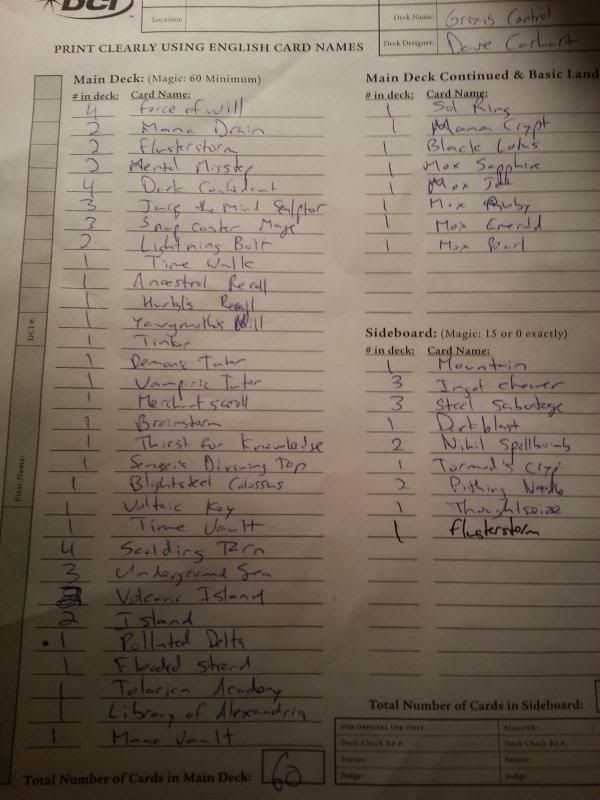 DCI
Location:
Deck Name: Grixis Control
Deck Designer: Dave Carhart
PRINT CLEARLY USING ENGLISH CARD NAMES
Main Deck: (Magic: 60 Minimum)
# in deck: Card Name:
4 Force of will
2 Mana Drain
2 Flusterstorm
2 Mental Misstep
4 Dark Confidant
3 Jace the Mind Sculptor
3 Snap caster Mage
2 Lightning Bolt
1 Time Walk
1 Ancestral Recall
1 Hurkyl's Recall
1 Yawgmoth's Will
1 Tinker
1 Demonic Tutor
1 Vampiric Tutor
1 Merchant scroll
1 Brainstorm
1 Thirst for Knowledge
1 Sensei's Divining Top
1 Blightsteel Colossus
1 Voltaic Key
1 Time Vault
4 Scalding Tarn
3 Underground Sea
Volcanic Island
2 Island
1 Polluted Delta
1 Flooded Strand
1 Tolarian Academy
1 Library of Alexandria
1 Mana Vault
Total Number of Cards in Main Deck: 60
Main Deck Continued & Basic Land
# in deck: Card Name:
1 Sol Ring
1 Mana Crypt
1 Black Lotus
1 Mox Sapphire
1 Mox Jet
1 Mox Ruby
1 Mox Emerald
1 Mox Pearl
Sideboard: (Magic: 15 or 0 exactly)
# in deck: Card Name:
1 Mountain
3 Ingot chewer
3 Steel Sabotage
1 Darkblast
2 Nihil Spellbomb
1 Tormod's Crypt
2 Pithing Needle
1 Thoughtseize
1 Flusterstorm
Total Number of Cards in Sideboard:
FOR OFFICIAL USE ONLY
Main/SB: /
Deck Check Rd #:
Deck Check Rd #:
Status:
Status:
Judge:
Judge:
DCI #:
First Name: